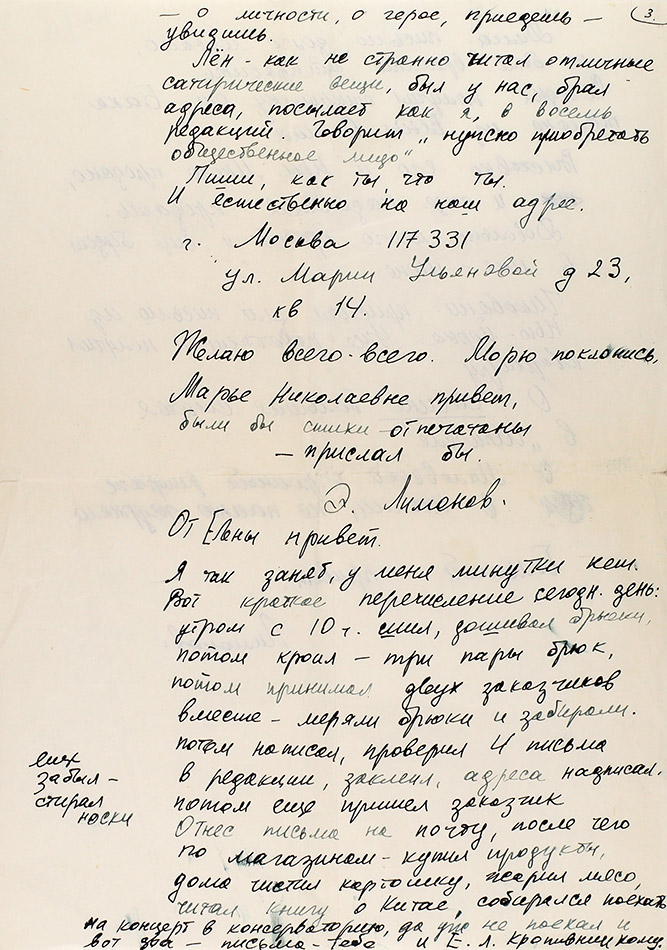 3.
— О личности, о герое, приедешь —
увидишь.
Лён - как не странно читал отличные
сатирические вещи, был у нас, брал
адреса, посылает как я, в восемь
редакций. Говорит „нужно приобретать
общественное лицо"
Пиши, как ты, что ты.
И естественно на наш адрес.
г. Москва 117331
ул. Марии Ульяновой д 23,
кв 14.
Желаю всего-всего. Морю поклонись,
Марье Николаевне привет,
были бы стихи отпечатаны
— прислал бы.
Э. Лимонов.
От Елены привет.
Я так занят, у меня минутки нет.
Вот краткое перечисление сегодн. день:
утром с 10 ч. шил, дошивал брюки,
потом кроил — три пары брюк,
потом принимал двух заказчиков
вместе - меряли брюки и забирали.
потом написал, проверил 4 письма
в редакции, заклеил, адреса надписал.
потом еще пришел заказчик
Отнес письма на почту, после чего
по магазинам - купил продукты,
дома чистил картошку, жарил мясо,
читал книгу о Китае, собирался поехать
на концерт в консерваторию, да уж не поехал и
вот два - письма - тебе и Е. Л. Кропивницкому
еще
забыл -
стирал
носки